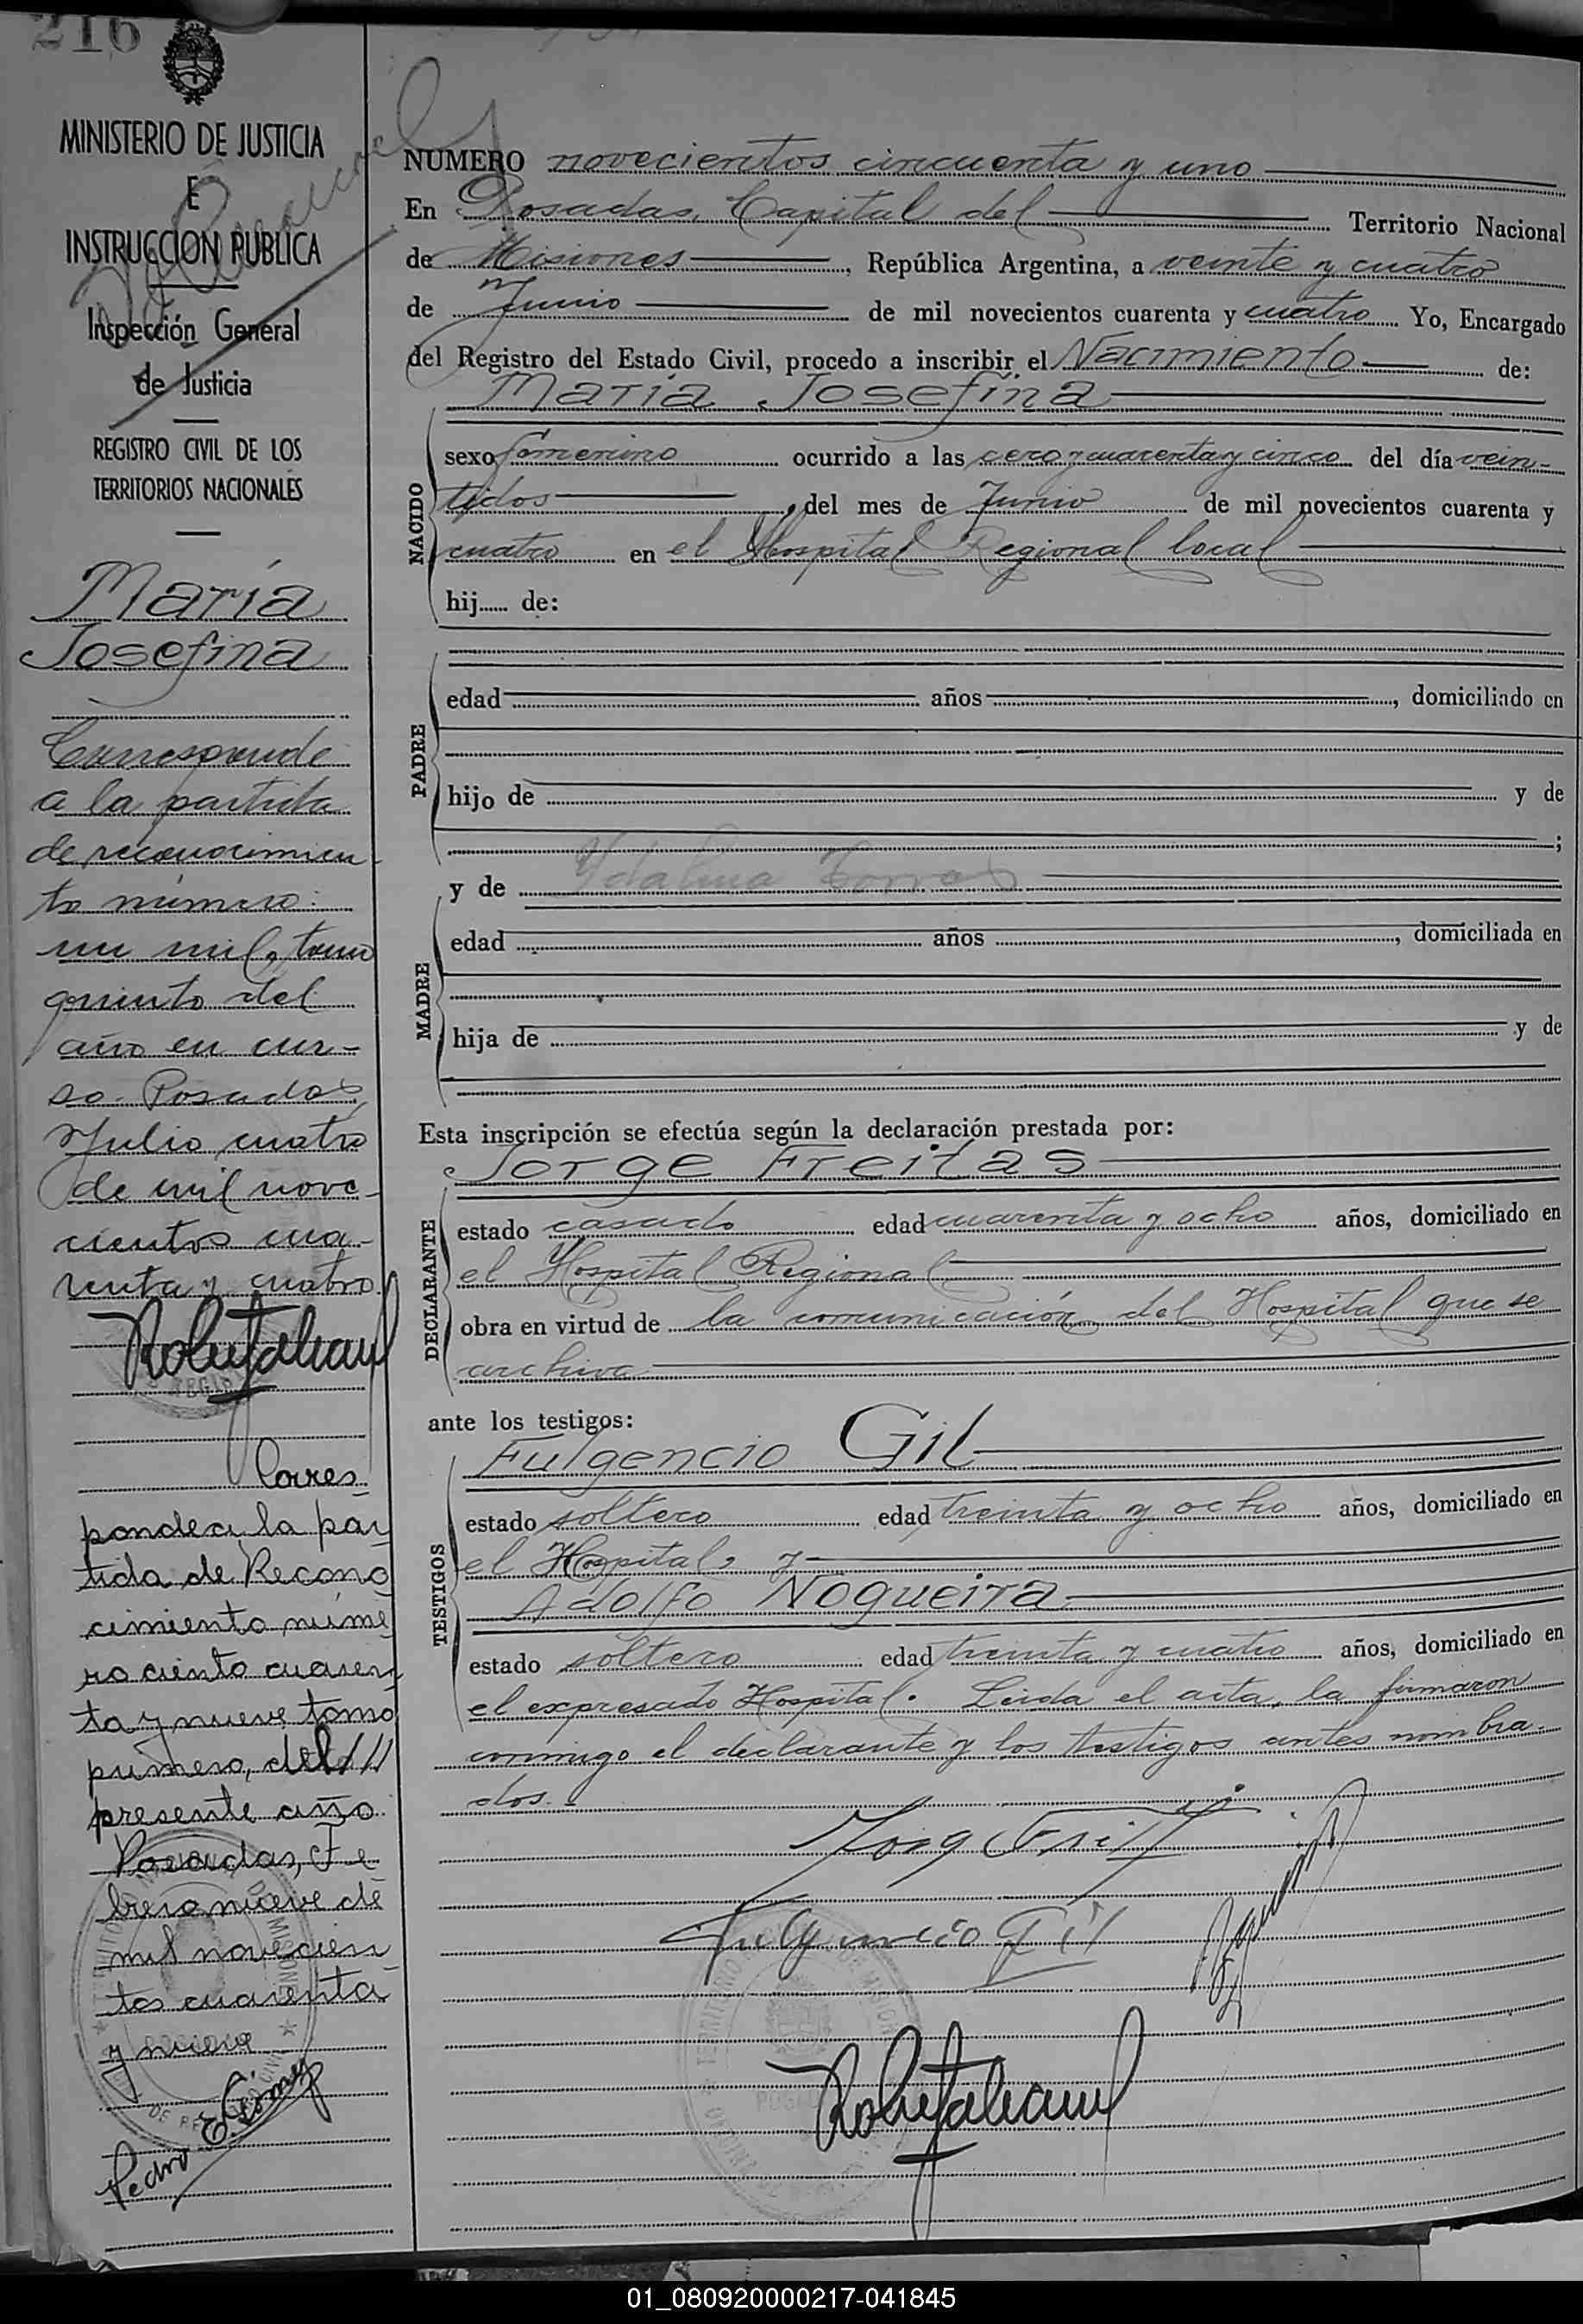 216
MINISTERIO DE JUSTICIA
E
INSTRUCCION PUBLICA
Inspección General
de Justicia
REGISTRO CIVIL DE LOS
TERRITORIOS NACIONALES
María
Josefina
Corresponde
a la partida
de reconocimien-
to número:
un mil, tomo
quinto del
año en cur-
so. Posadas,
Julio cuatro
de mil nove-
cientos cua-
renta y cuatro
Corres
ponde a la par
tida de Recono
cimiento núme
ro ciento cuaren
ta y nueve tomo
primero, del ///
presente año.
Posadas, Fe
brero nueve de
mil novecien
tos cuarenta
y nueve
Pedro E. Gómez
NUMERO novecientos cincuenta y uno
En Posadas, Capital del Territorio Nacional
de Misiones, República Argentina, a veinte y cuatro
de Junio de mil novecientos cuarenta y cuatro Yo, Encargado
del Registro del Estado Civil, procedo a inscribir el Nacimiento de:
María Josefina
NACIDO
sexo femenino ocurrido a las cero y cuarenta y cinco del día vein-
tidos, del mes de Junio de mil novecientos cuarenta y
cuatro en el Hospital Regional local
hij...... de:
PADRE
edad años, domiciliado en
hijo de y de
;
y de Ydalina Torres
MADRE
edad años, domiciliada en
hija de y de
Esta inscripción se efectúa según la declaración prestada por:
Jorge Freitas
DECLARANTE
estado casado edad cuarenta y ocho años, domiciliado en
el Hospital Regional
obra en virtud de la comunicación del Hospital que se
archiva
ante los testigos:
Fulgencio Gil
TESTIGOS
estado soltero edad treinta y ocho años, domiciliado en
el Hospital, y
Adolfo Nogueira
estado soltero edad treinta y cuatro años, domiciliado en
el expresado Hospital. Leida el acta, la firmaron
conmigo el declarante y los testigos antes nombra-
dos.
Fulgencio Gil
01_080920000217-041845